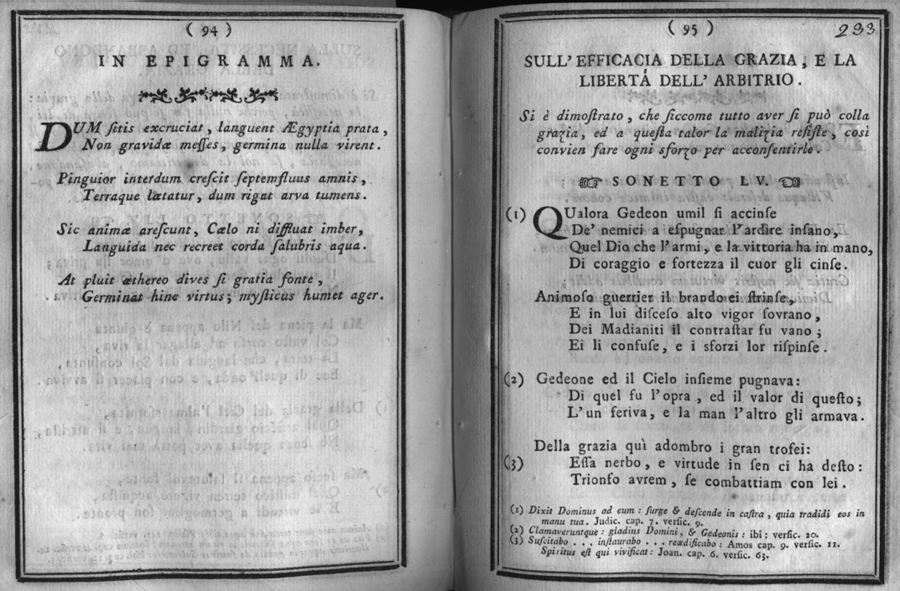 ( 94 )
IN EPIGRAMMA.
DUM ſitis excruciat, languent Ægyptia prata,
Non gravidæ meſſes, germina nulla virent.
Pinguior interdum creſcit ſeptemfluus amnis,
Terraque lætatur, dum rigat arva tumens.
Sic animæ areſcunt, Cælo ni diffluat imber,
Languida nec recreet corda ſalubris aqua.
At pluit æthereo dives ſi gratia fonte,
Germinat hinc virtus; myſticus humet ager.
( 95 )
233
SULL' EFFICACIA DELLA GRAZIA, E LA
LIBERTÁ DELL' ARBITRIO.
Si è dimoſtrato, che ſiccome tutto aver ſi può colla
grazia, ed a queſta talor la malizia reſiſte, così
convien fare ogni sforzo per acconſentirle.
☞ SONETTO LV. ☜
(1) QUalora Gedeon umil ſi accinſe
De' nemici a eſpugnar l'ardire inſano,
Quel Dio che l'armi, e la vittoria ha in mano,
Di coraggio e fortezza il cuor gli cinſe.
Animoſo guerrier il brando ei ſtrinſe,
E in lui diſceſo alto vigor ſovrano,
Dei Madianiti il contraſtar fu vano;
Ei li confuſe, e i sforzi lor riſpinſe.
(2) Gedeone ed il Cielo inſieme pugnava:
Di quel fu l'opra, ed il valor di queſto;
L'un feriva, e la man l'altro gli armava.
Della grazia quì adombro i gran trofei:
(3) Eſſa nerbo, e virtude in ſen ci ha deſto:
Trionfo avrem, ſe combattiam con lei.
(1) Dixit Dominus ad eum: ſurge & deſcende in caſtra, quia tradidi eos in
manu tua. Judic. cap. 7. verſic. 9.
(2) Clamaveruntque: gladius Domini, & Gedeonis: ibi: verſic. 20.
(3) Suſcitabo... inſtaurabo... reædificabo: Amos cap. 9. verſic. 11.
Spiritus eſt qui vivificat: Joan. cap. 6. verſic. 63.